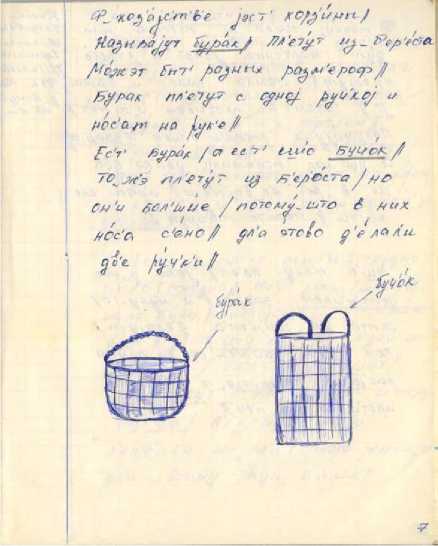 Ф_хоз'áјств'е јест' корз'и́ны//
Называјут бурáк// Пл'ету́т из_б'ер'о́ста
Мóжэт быт' разных разм'ероф//
Бурак пл'етут с одној ручкој и
нóс'ат на рук'е//
Ес'т' бурáк/а ест' ишо Бучóк//
То_жэ пл'ету́т из б'ерóста/но
он'и бол'шы́е/потому́_што в них
нóс'а с'éно// дл'а этово д'éлал'и
дв'е ру́чк'и//
бурáк
бучóк
7